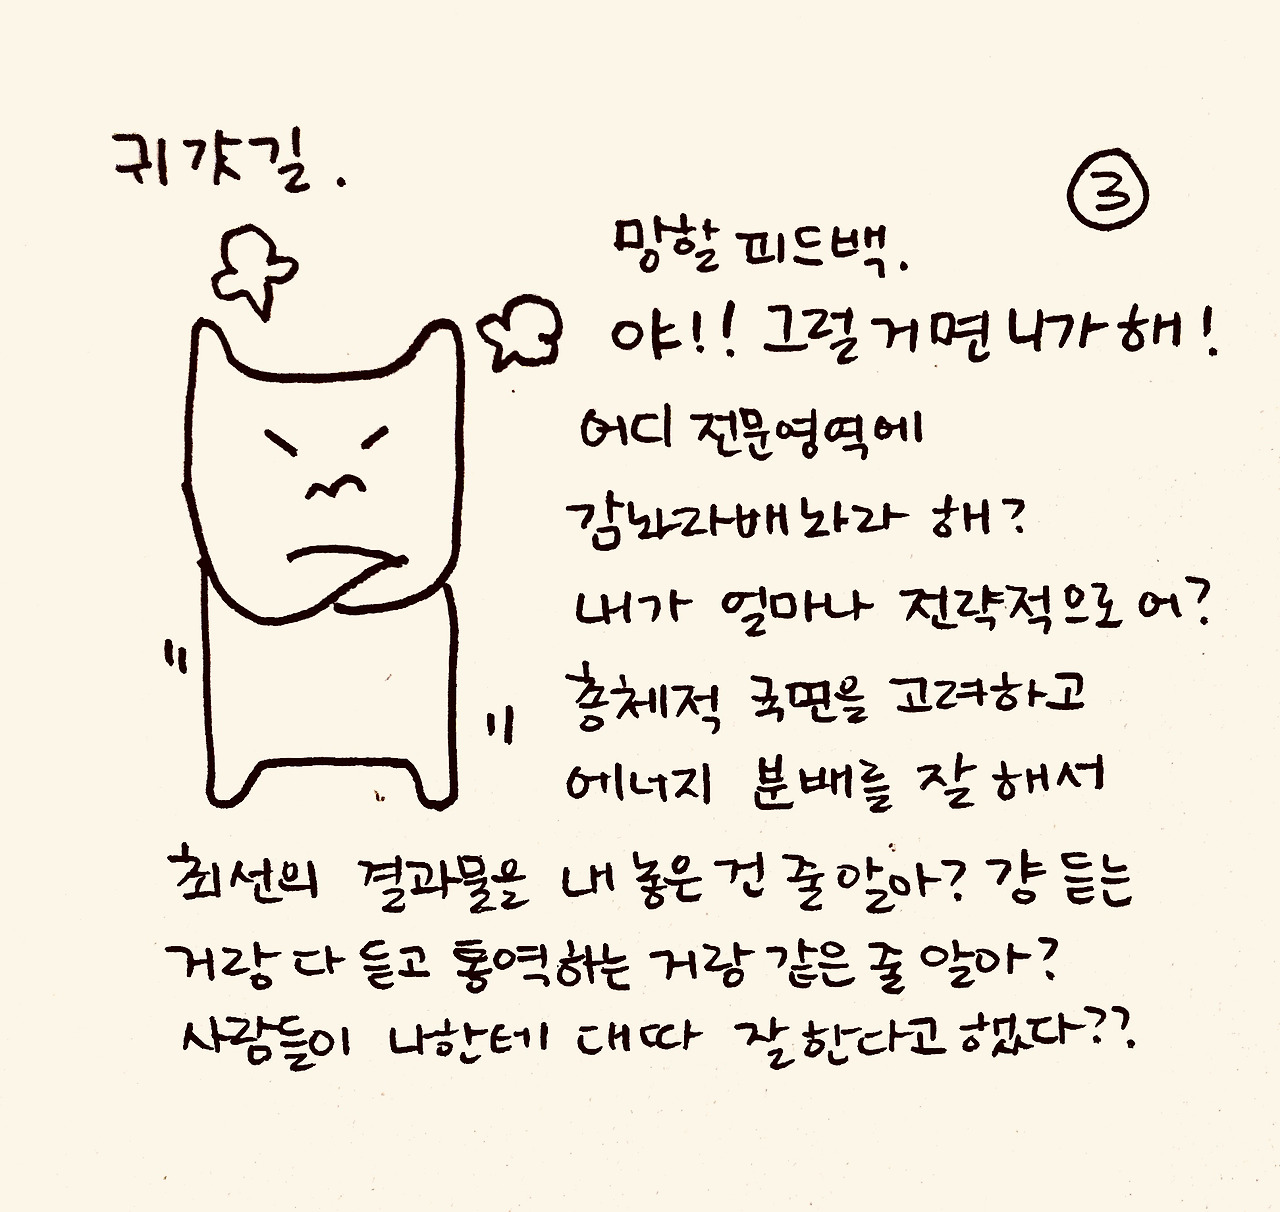 귀갓길.
③
망할 피드백.
야!! 그럴거면 니가 해!
어디 전문영역에
감놔라배놔라 해?
내가 얼마나 전략적으로 어?
총체적 국면을 고려하고
에너지 분배를 잘 해서
최선의 결과물을 내 놓은 건 줄 알아? 걍 듣는
거랑 다 듣고 통역하는 거랑 같은 줄 알아?
사람들이 나한테 대따 잘 한다고 했다??